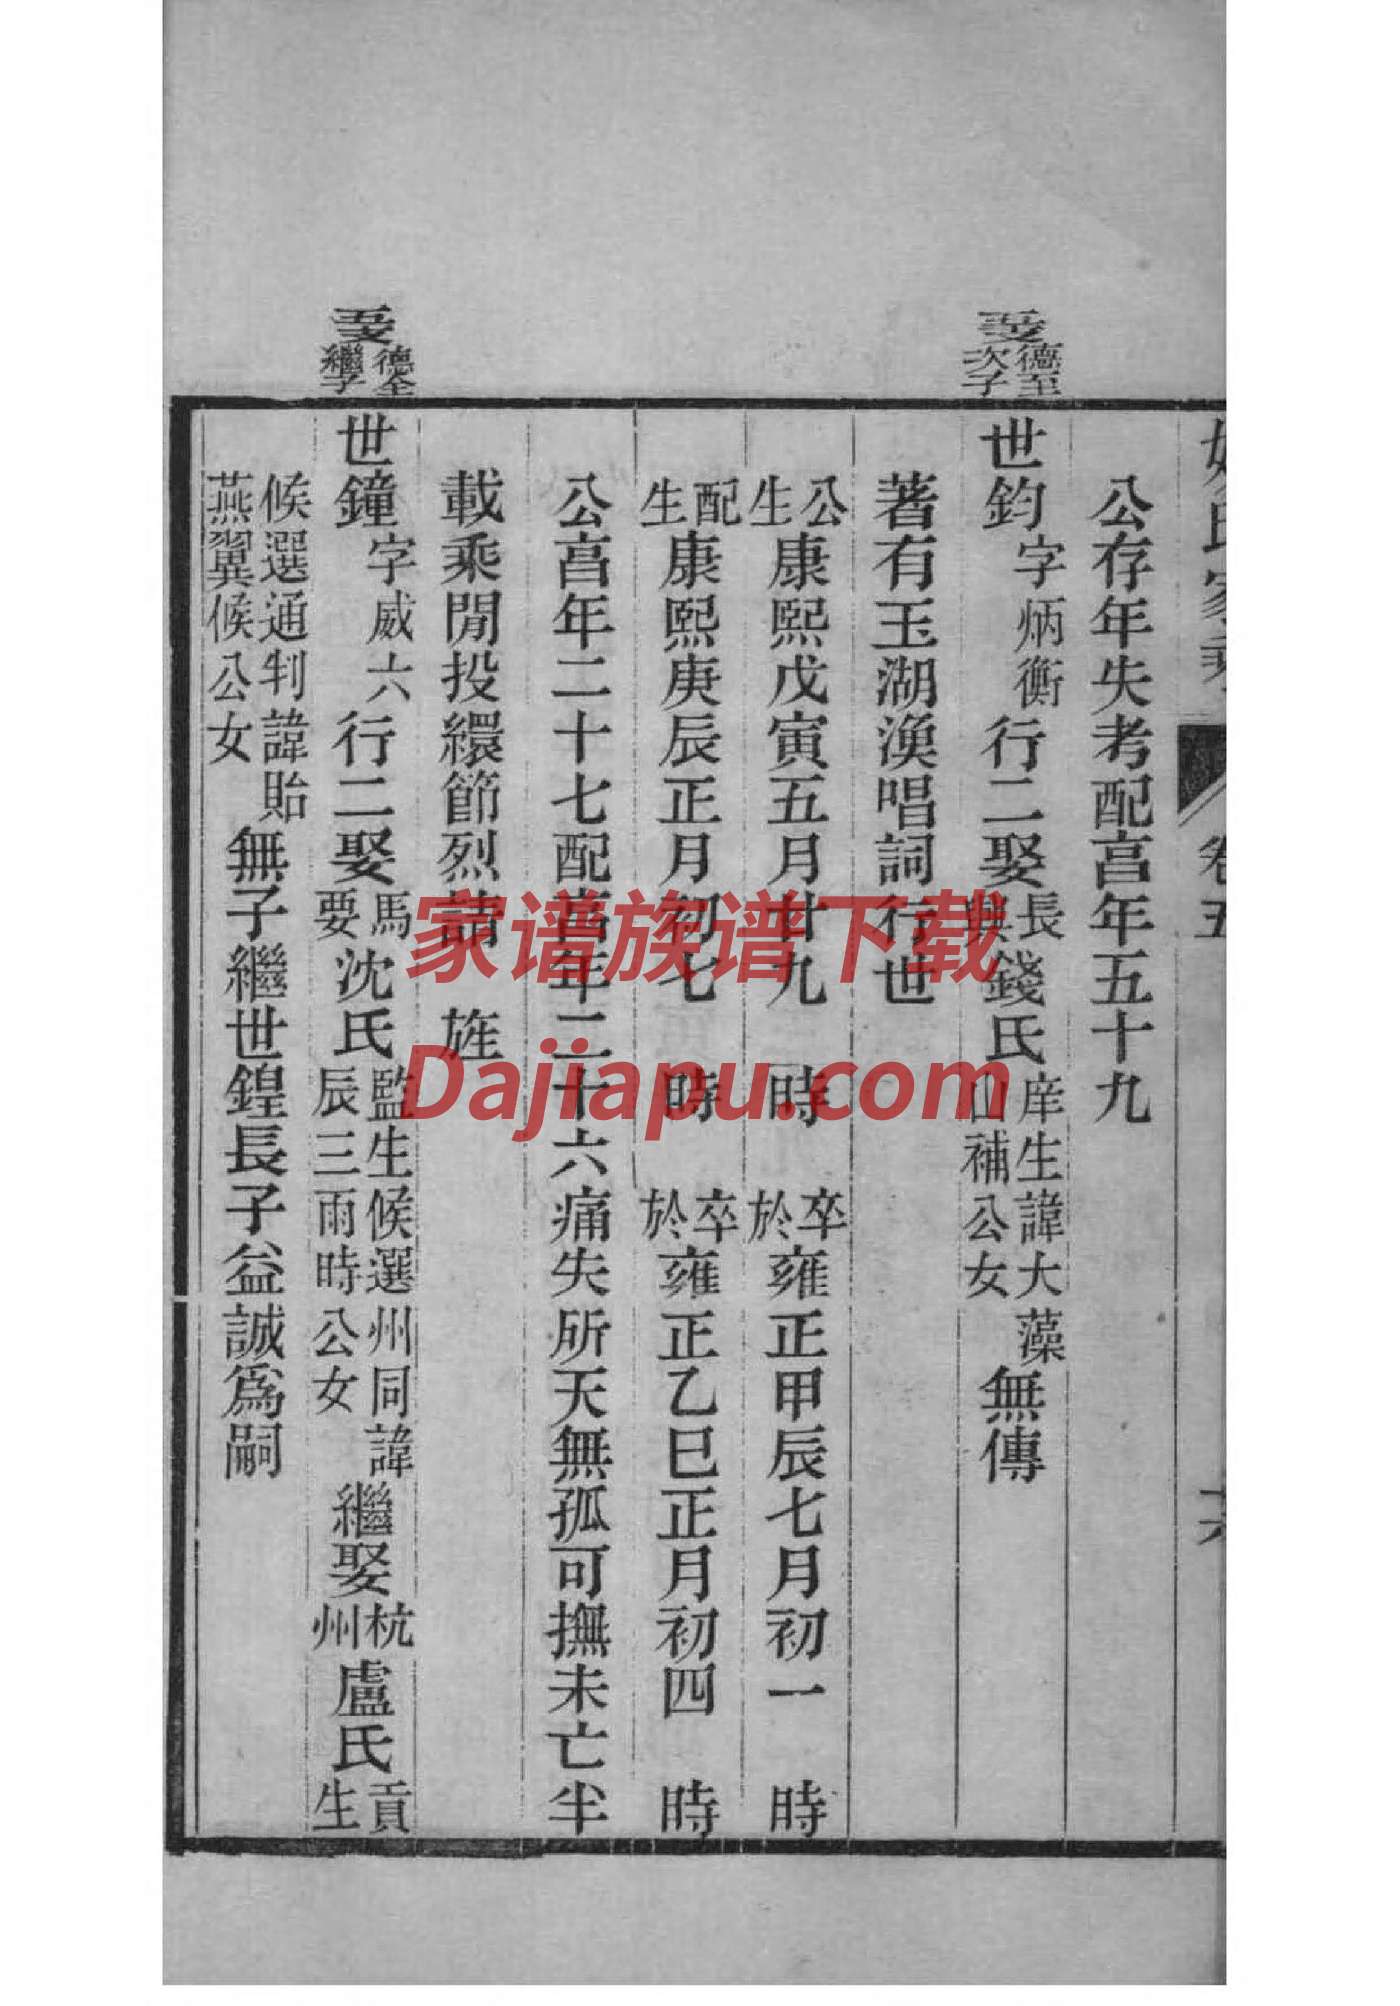 氏家乘 卷五
公存年失考配亯年五十九
五支 德至次子
世鈞 字炳衡 行二娶 長興 錢氏 庠生諱大藻 山補公女 無傳
著有玉湖漁唱詞行世
公生康熙戊寅五月廿九 時 卒於雍正甲辰七月初一 時
配生康熙庚辰正月初七 時 卒於雍正乙巳正月初四 時
公亯年二十七配亯年二十六痛失所天無孤可撫未亡半
載乘閒投繯節烈請 旌
五支 德全繼子
世鐘 字威六 行二娶 馬要 沈氏 監生候選州同諱 辰三雨時公女 繼娶 杭州 盧氏 貢生
候選通判諱貽 燕翼候公女 無子繼世鍠長子益誠爲嗣
家谱族谱下载
Dajiapu.com